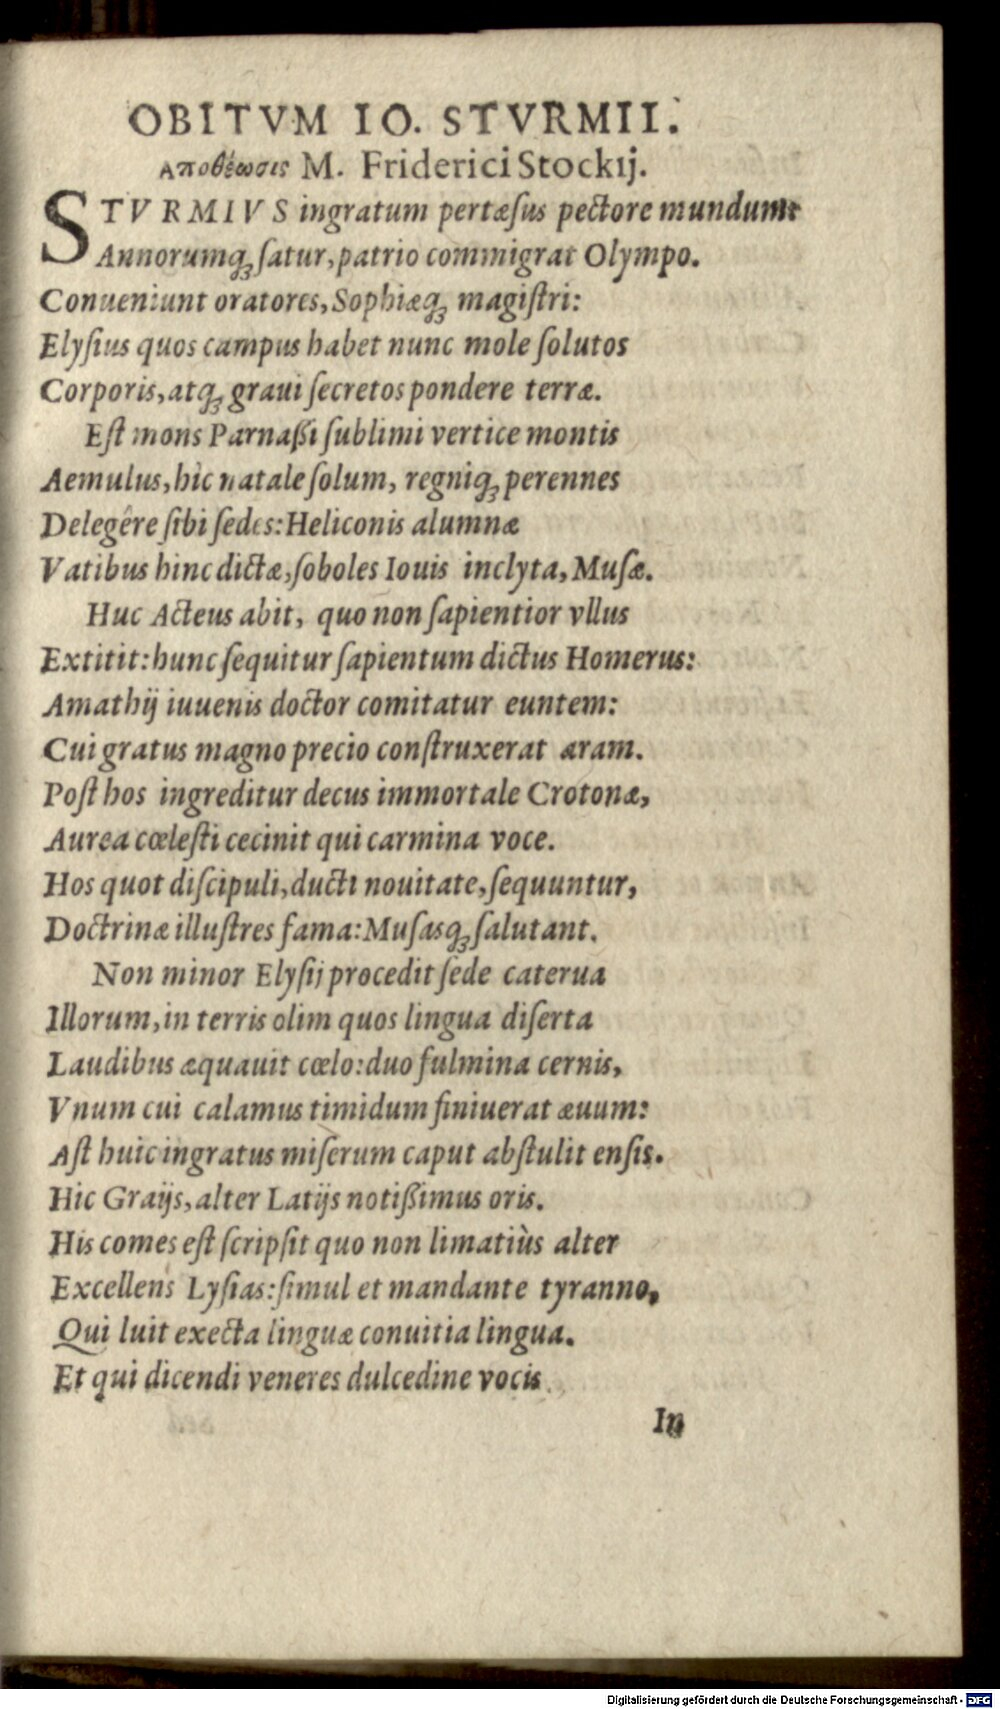 OBITVM IO. STVRMII.
Αποθέωσις M. Friderici Stockij.
STVRMIVS ingratum pertæſus pectore mundum:
Annorumq́; ſatur, patrio commigrat Olympo.
Conueniunt oratores, Sophiæq́; magiſtri:
Elyſius quos campus habet nunc mole ſolutos
Corporis, atq́; graui ſecretos pondere terræ.
Eſt mons Parnaßi ſublimi vertice montis
Aemulus, hîc natale ſolum, regniq́; perennes
Delegêre ſibi ſedes: Heliconis alumnæ
Vatibus hinc dictæ, ſoboles Iouis inclyta, Muſæ.
Huc Acteus abit, quo non ſapientior vllus
Extitit: hunc ſequitur ſapientum dictus Homerus:
Amathij iuuenis doctor comitatur euntem:
Cui gratus magno precio conſtruxerat aram.
Poſt hos ingreditur decus immortale Crotonæ,
Aurea cœleſti cecinit qui carmina voce.
Hos quot diſcipuli, ducti nouitate, ſequuntur,
Doctrinæ illuſtres fama: Muſasq́; ſalutant.
Non minor Elyſij procedit ſede caterua
Illorum, in terris olim quos lingua diſerta
Laudibus æquauit cœlo: duo fulmina cernis,
Vnum cui calamus timidum finiuerat æuum:
Aſt huic ingratus miſerum caput abſtulit enſis.
Hic Graijs, alter Latijs notißimus oris.
His comes eſt ſcripſit quo non limatiùs alter
Excellens Lyſias: ſimul et mandante tyranno,
Qui luit execta linguæ conuitia lingua.
Et qui dicendi veneres dulcedine vocis
In
Digitalisierung gefördert durch die Deutsche Forschungsgemeinschaft - DFG